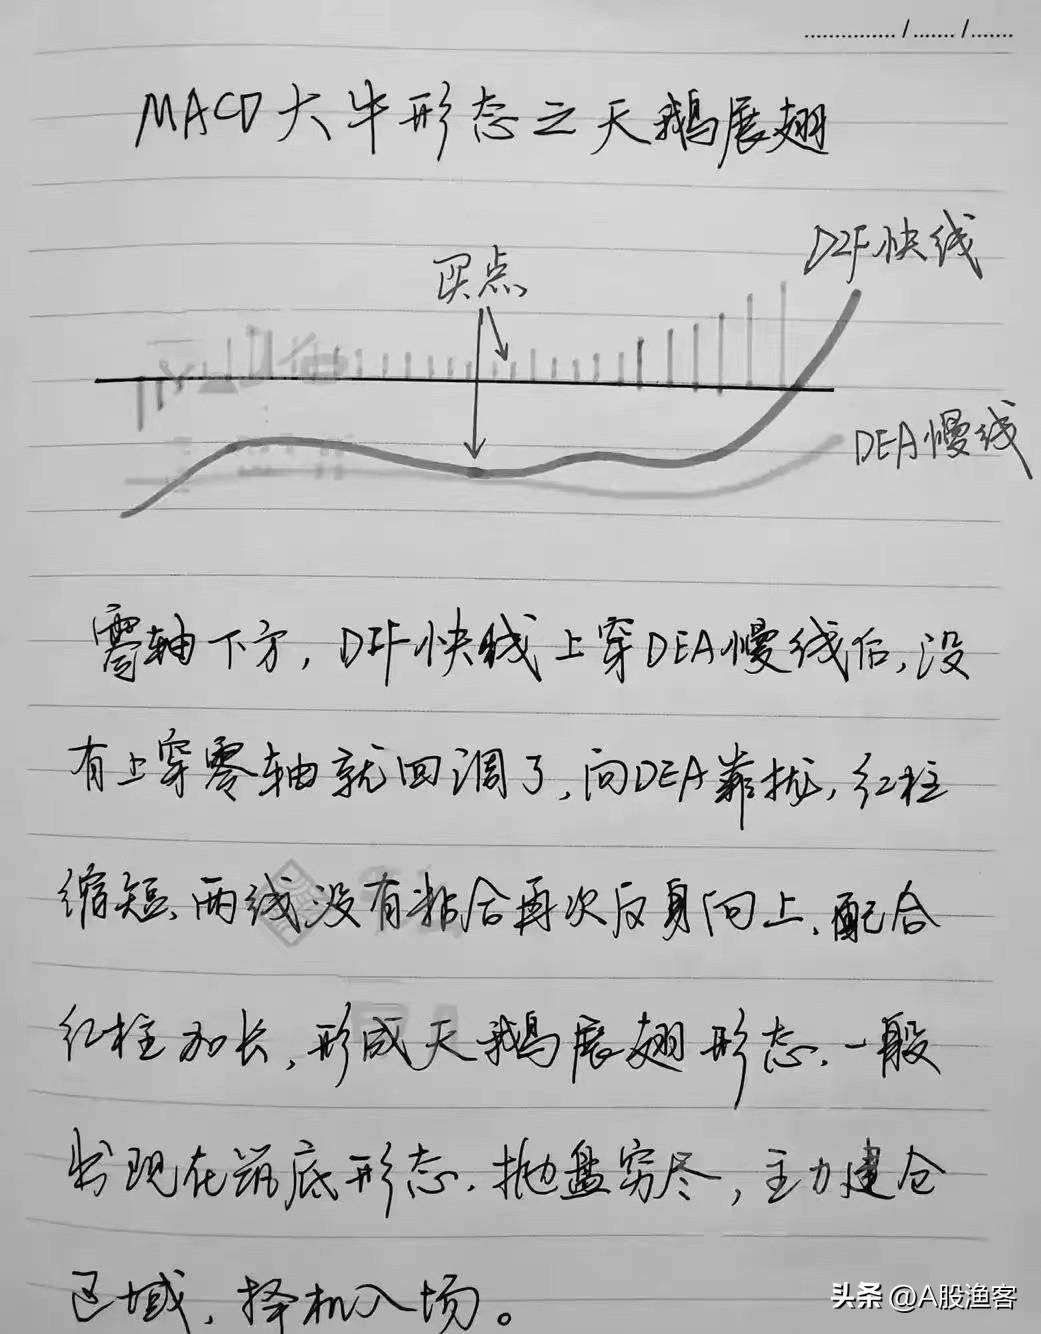 MACD大牛形态之天鹅展翅
买点
DIF快线
DEA慢线
零轴下方，DIF快线上穿DEA慢线后，没
有上穿零轴就回调了，向DEA靠拢，红柱
缩短、两线没有粘合再次反身向上、配合
红柱加长，形成天鹅展翅形态、一般
出现在筑底形态、抛盘穷尽，主力建仓
区域，择机入场。
头条 @A股渔客